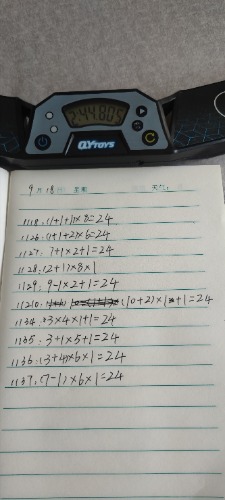 2:44.805
QY TOYS
9月18日 星期 天气:
1118:(1+1+1)×8=24
1126:(1+1+2)×6=24
1127:7+1×2+1=24
1128:(2+1)×8×1
1129:9-1×2+1=24
11210: (10+2)×1×+1=24
1134:3×4×1+1=24
1135:3+1×5+1=24
1136:(3+4)×6×1=24
1137:(7-1)×6×1=24